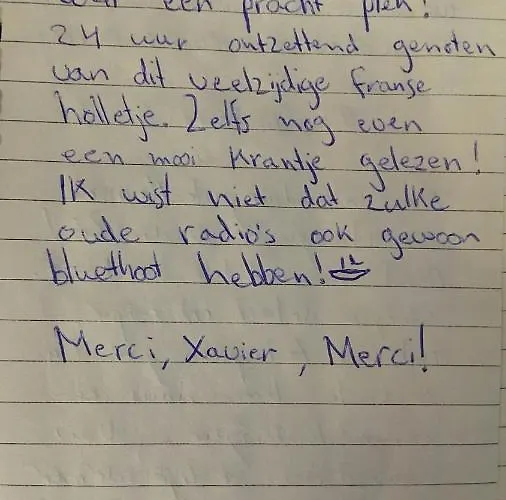 een pracht plek!
24 uur ontzettend genoten
van dit veelzijdige franse
holletje. Zelfs nog even
een mooi krantje gelezen!
Ik wist niet dat zulke
oude radio's ook gewoon
bluethoot hebben!
Merci, Xavier, Merci!